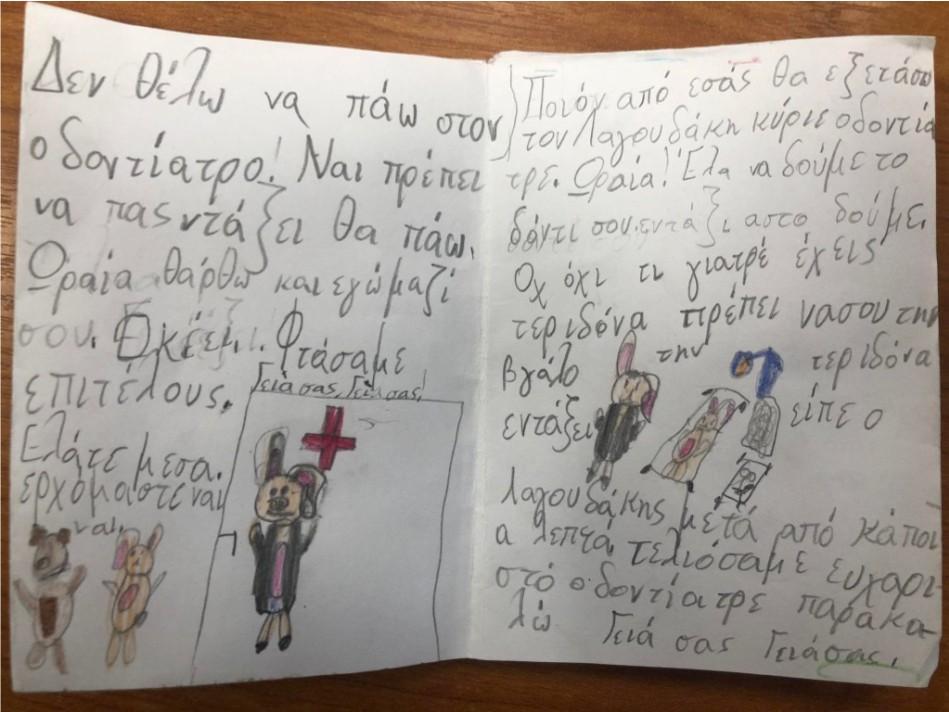 Δεν θέλω να πάω στον
οδοντίατρο! Ναι πρέπει
να πας ντάξει θα πάω.
Ωραία θάρθω και εγώ μαζί
σου. Οκέει. Φτάσαμε
επιτέλους.
Γειά σας, Γειά σας!
Ελάτε μεσα.
ερχόμαστε ναι
ναι.
Ποιόν από εσάς θα εξετάσω
τον Λαγουδάκη κύριε οδοντία
τρε. Ωραία! Έλα να δούμε το
δόντι σου. εντάξι ας το δούμε.
Οχ όχι τι γιατρέ έχεις
τεριδόνα πρέπει να σου την
βγάλο την τεριδόνα
εντάξει είπε ο
λαγουδάκης μετά από κάποι
α λεπτά τελιόσαμε ευχαρι
στό οδοντίατρε παρακα-
λώ. Γειά σας Γειά σας.